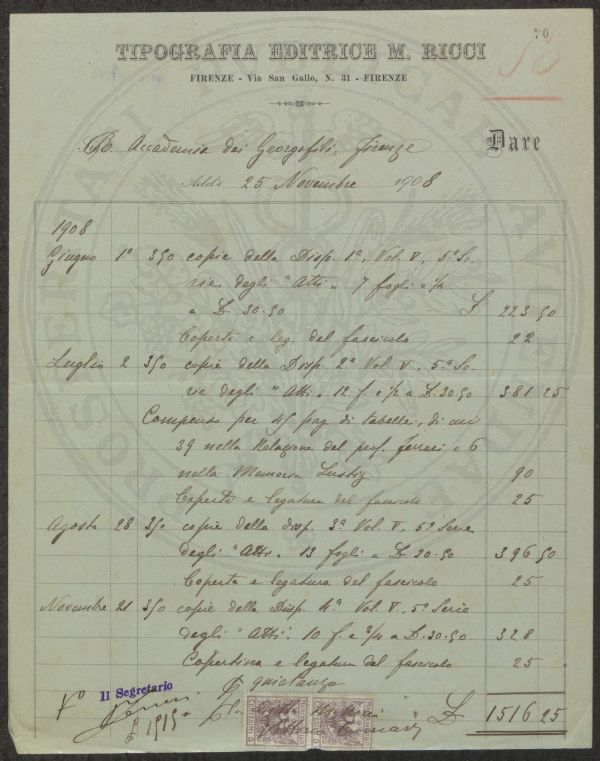 70
TIPOGRAFIA EDITRICE M. RICCI
FIRENZE - Via San Gallo, N. 31 - FIRENZE
R. Accademia dei Georgofili, Firenze Dare
Addì 25 Novembre 1908
1908
Giugno 1º 350 copie della Disp. 1ª, Vol. V, 5ª Se-
rie degli "Atti" 7 fogli e 1/2
a L. 30.50 L 223 50
Coperta e leg. del fascicolo 22
Luglio 2 350 copie della Disp. 2ª Vol. V. 5ª Se
rie degli "Atti" 12 f. e 1/2 a L. 30.50 381 25
Compenso per 45 pag. di tabelle, di cui
39 nella Relazione del prof. Ferrari e 6
nella Memoria Lustig 90
Coperta e legatura del fascicolo 25
Agosto 28 350 copie della disp. 3ª Vol. V. 5ª Serie
degli "Atti" 13 fogli a L. 30.50 396 50
Coperta e legatura del fascicolo 25
Novembre 21 350 copie della Disp. 4ª Vol. V. 5ª Serie
degli "Atti" 10 f. e 3/4 a L. 30.50 328
Copertina e legatura del fascicolo 25
quietanza
Vº Il Segretario
L 1516 25